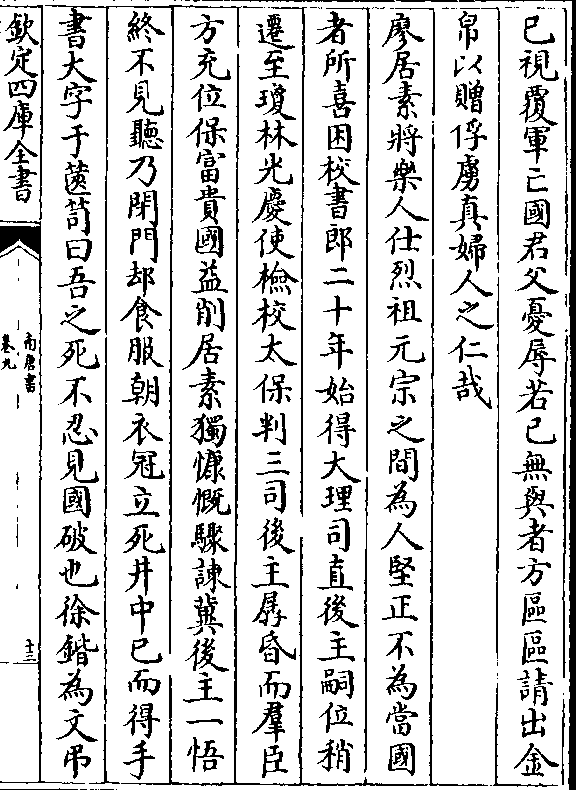 已視覆軍亡國君父憂辱若已無與者方區區請出金
帛以贈俘虜真婦人之仁哉
廖居素將樂人仕烈祖元宗之間為人堅正不為當國
者所喜困校書郎二十年始得大理司直後主嗣位稍
遷至瓊林光慶使檢校太保判三司後主孱昏而羣臣
方充位保富貴國益削居素獨慷慨驟諫冀後主一悟
終不見聽乃閉門却食服朝衣冠立死井中已而得手
書大字于篋笥曰吾之死不忍見國破也徐鍇為文弔
欽定四庫全書
南唐書
卷九
十三